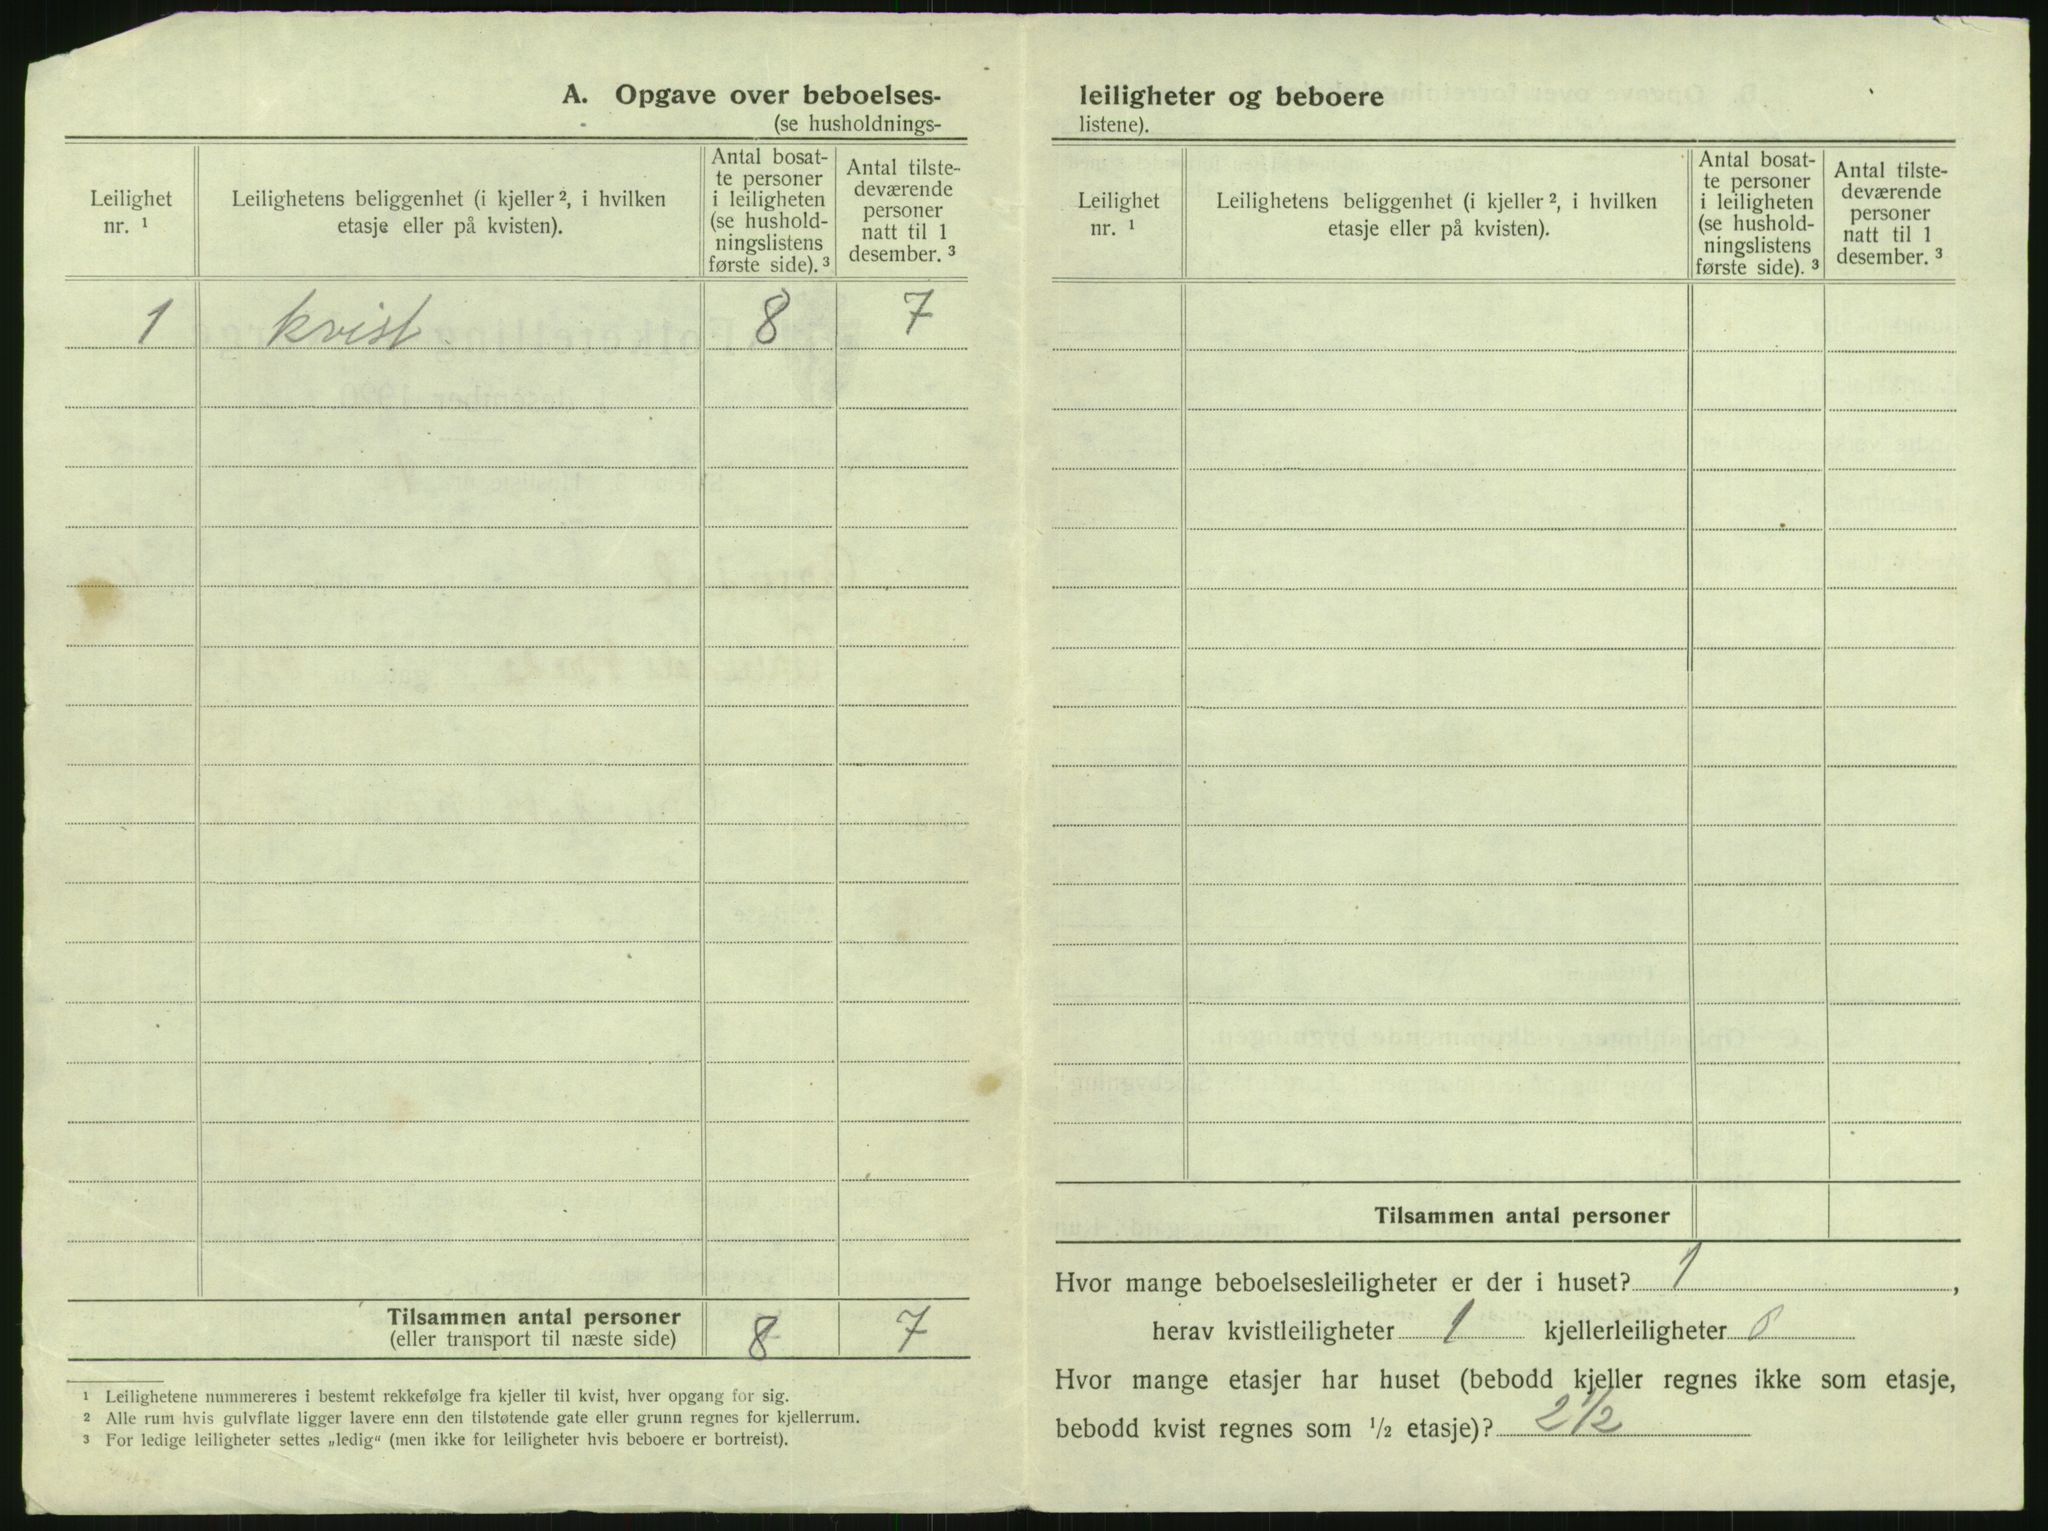 A. Opgave over beboelses-
(se husholdnings-
Leilighet nr. ¹
Leilighetens beliggenhet (i kjeller ², i hvilken etasje eller på kvisten).
Antal bosatte personer i leiligheten (se husholdningslistens første side). ³
Antal tilstedeværende personer natt til 1 desember. ³
1 kvist 8 7
Tilsammen antal personer
(eller transport til næste side) 8 7
¹ Leilighetene nummereres i bestemt rekkefølge fra kjeller til kvist, hver opgang for sig.
² Alle rum hvis gulvflate ligger lavere enn den tilstøtende gate eller grunn regnes for kjellerrum.
³ For ledige leiligheter settes „ledig“ (men ikke for leiligheter hvis beboere er bortreist).
leiligheter og beboere
listene).
Leilighet nr. ¹
Leilighetens beliggenhet (i kjeller ², i hvilken etasje eller på kvisten).
Antal bosatte personer i leiligheten (se husholdningslistens første side). ³
Antal tilstedeværende personer natt til 1 desember. ³
Tilsammen antal personer
Hvor mange beboelsesleiligheter er der i huset? 1,
herav kvistleiligheter 1 kjellerleiligheter 0
Hvor mange etasjer har huset (bebodd kjeller regnes ikke som etasje,
bebodd kvist regnes som 1/2 etasje)? 2 1/2